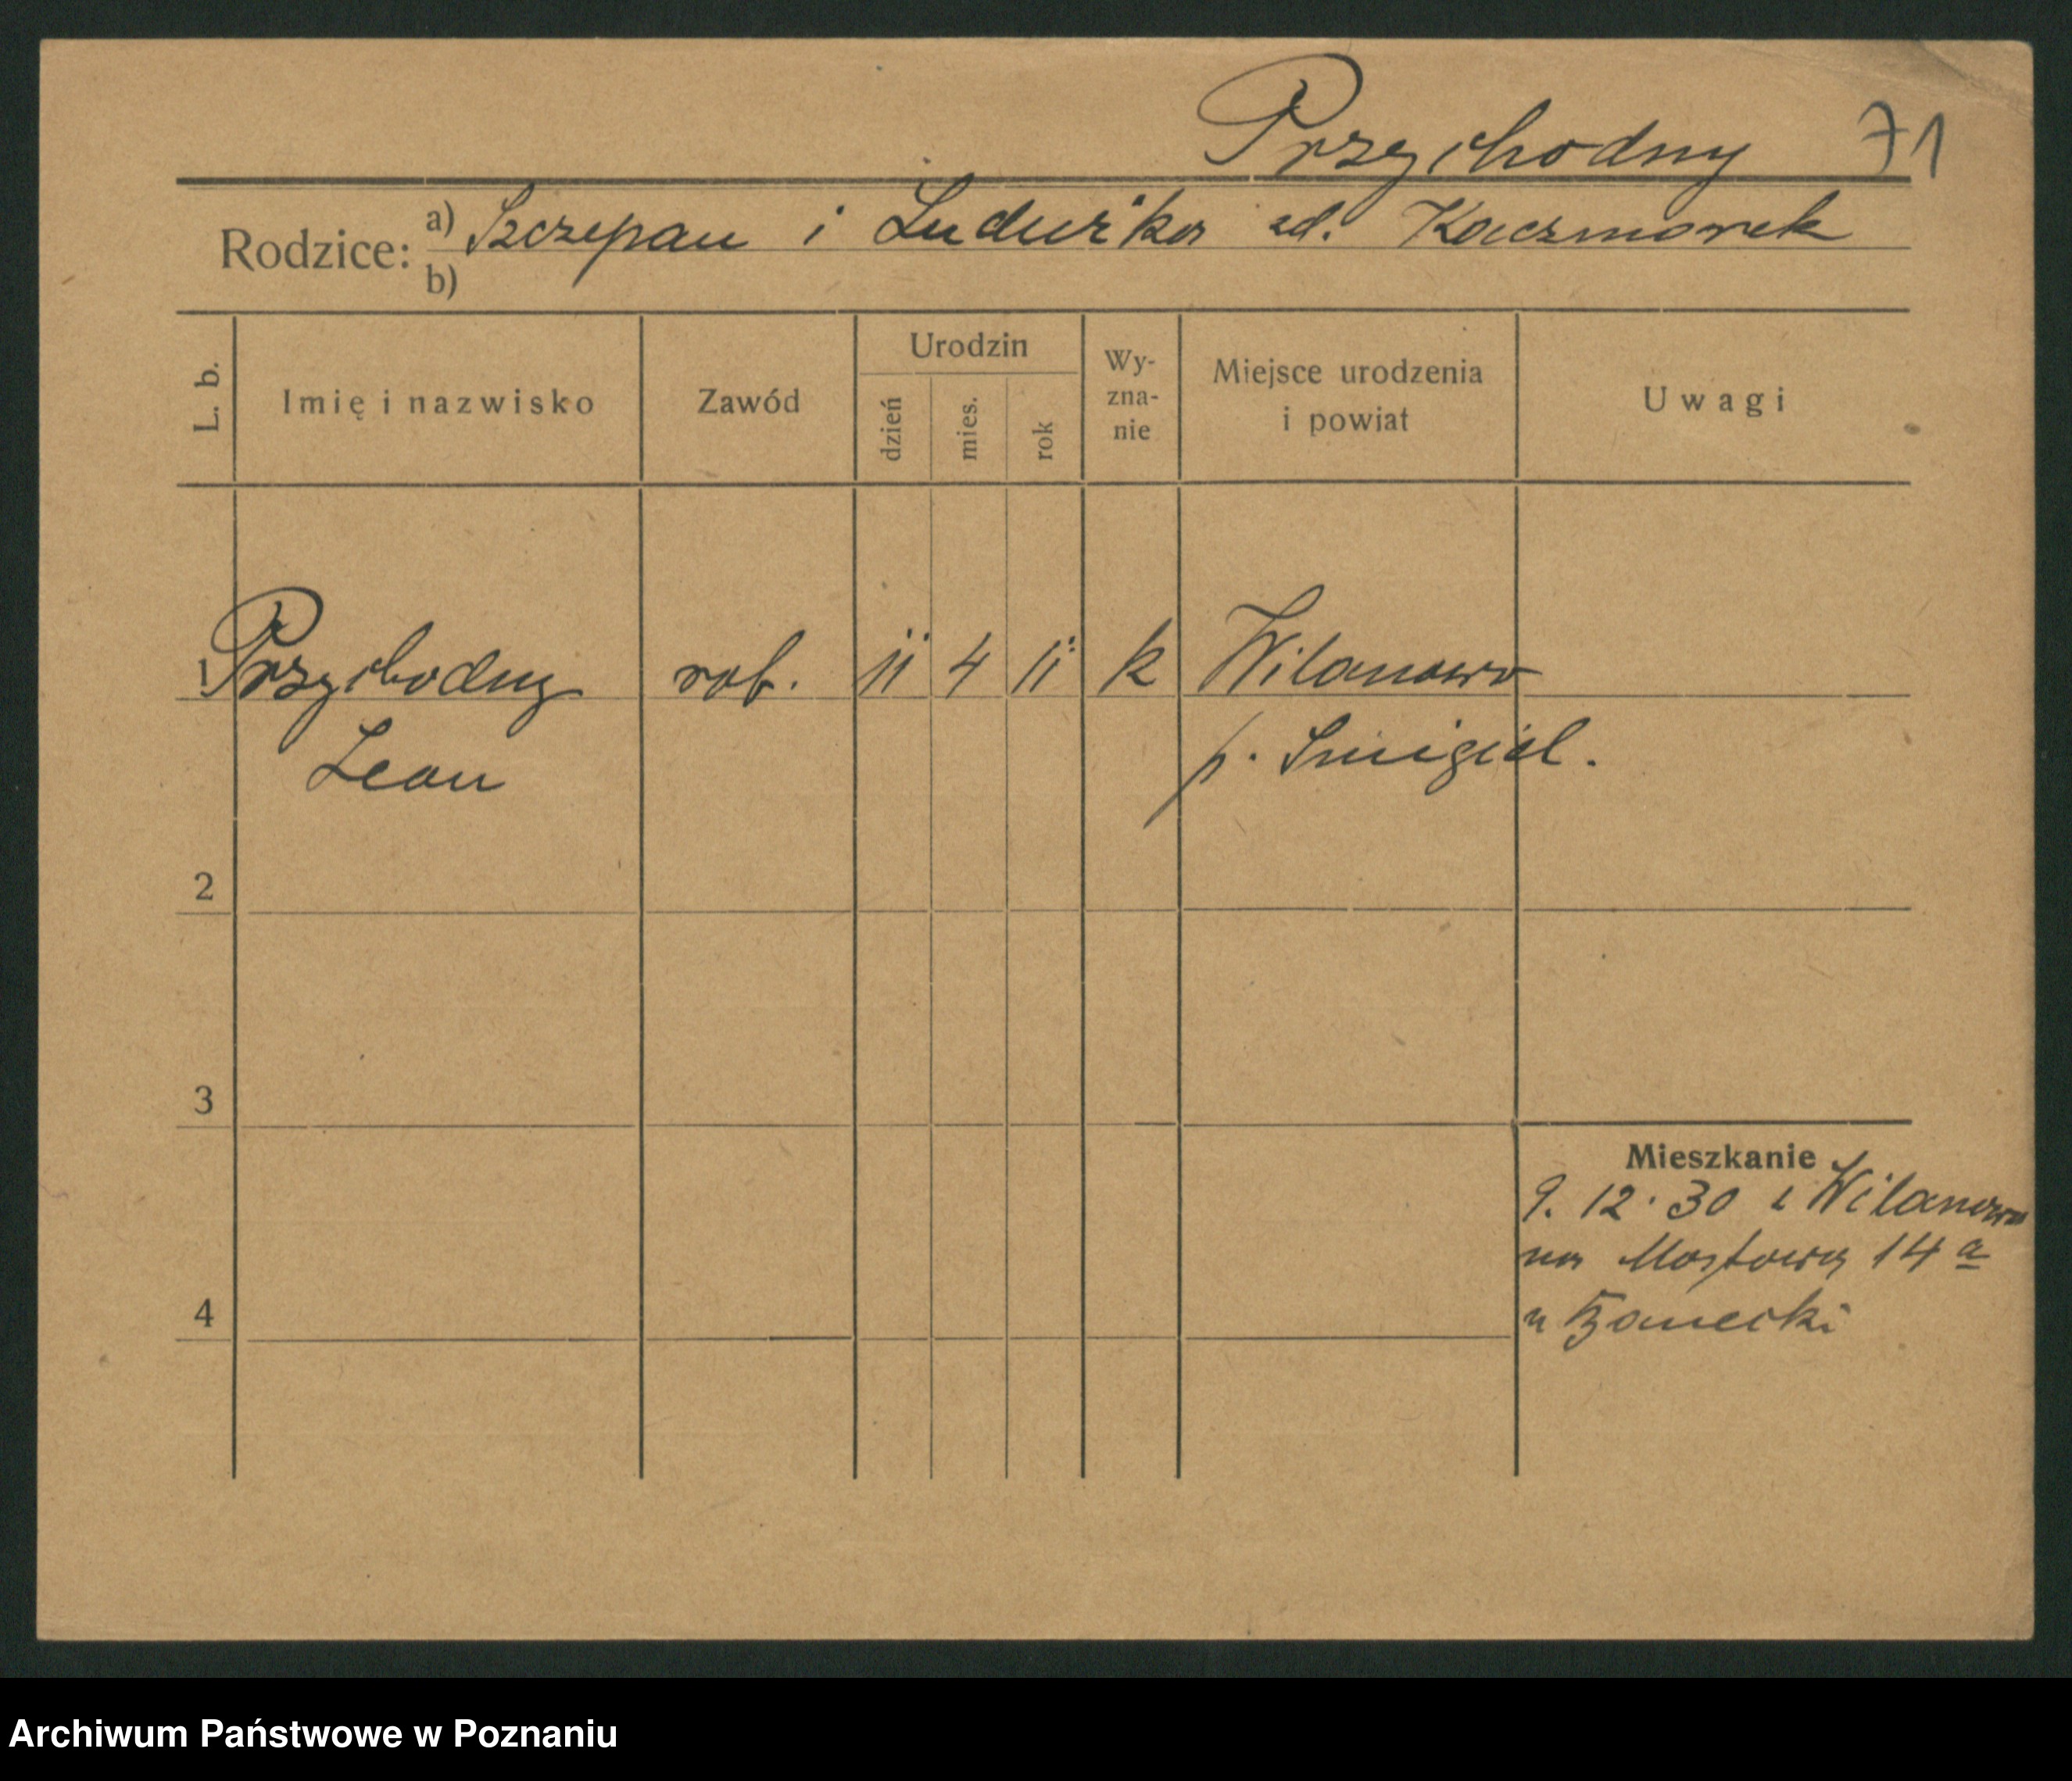 Przychodny 71
Rodzice: a) Szczepan i Ludwika zd. Kaczmarek
b)
L. b. Imię i nazwisko Zawód Urodzin dzień mies. rok Wy-zna-nie Miejsce urodzenia i powiat Uwagi
1 Przychodny rob. 11 4 11 k Wilanowo
Leon p. Śmigiel.
2
3
Mieszkanie
9. 12. 30 z Wilanowa
na Mostową 14 a
4
u Banecki
Archiwum Państwowe w Poznaniu